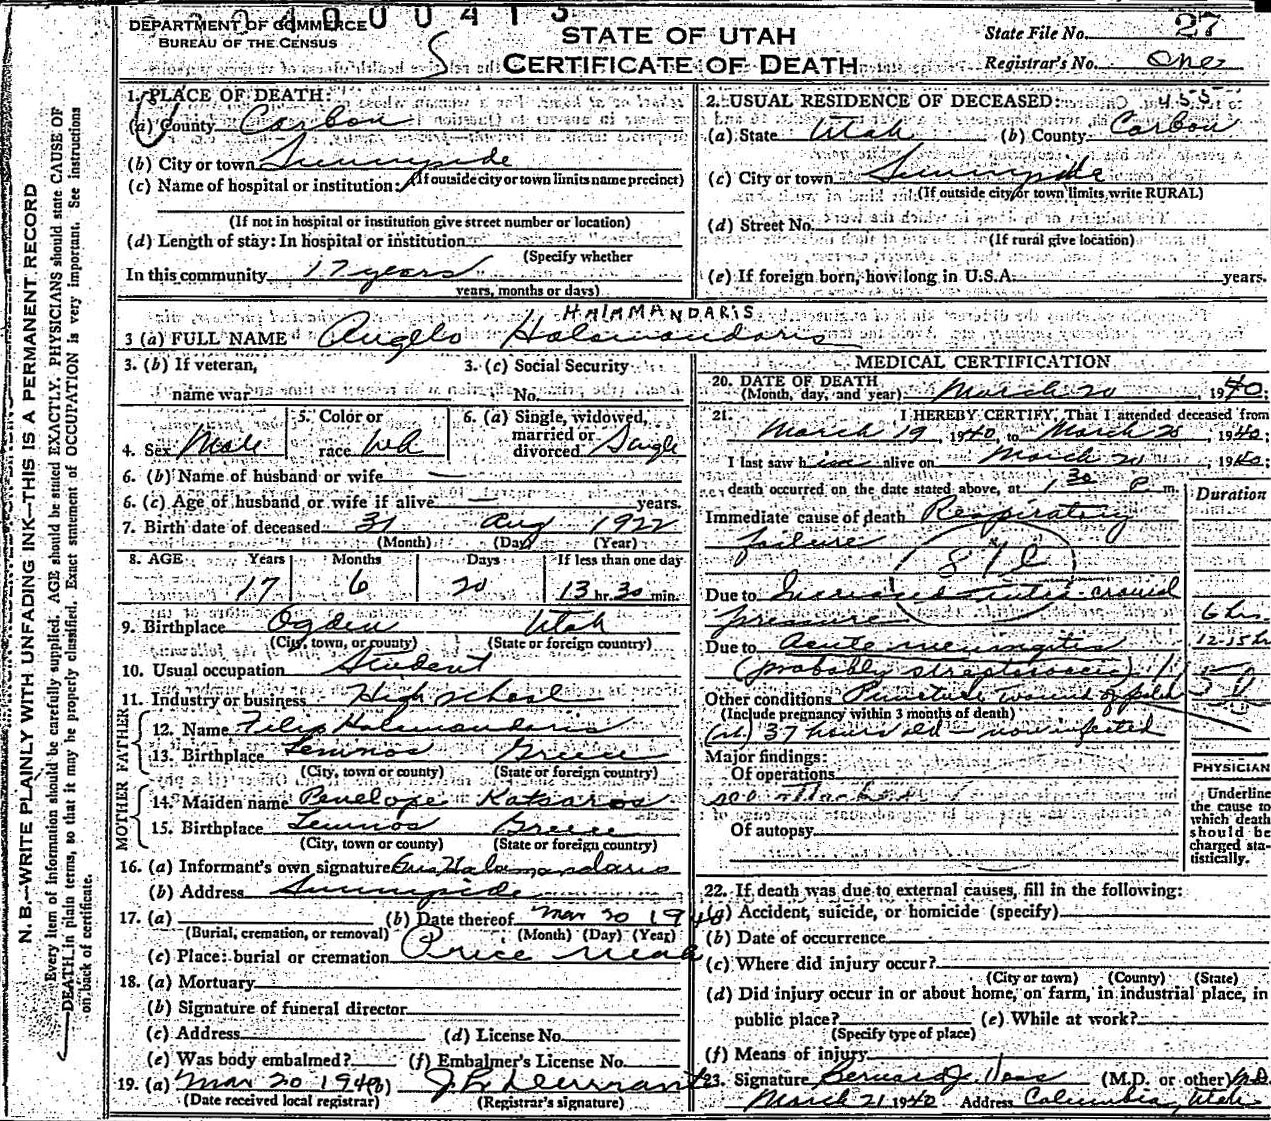 DEPARTMENT OF COMMERCE
BUREAU OF THE CENSUS
STATE OF UTAH
CERTIFICATE OF DEATH
State File No. 27
Registrar's No. One
N. B.—WRITE PLAINLY WITH UNFADING INK—THIS IS A PERMANENT RECORD
Every item of information should be carefully supplied. AGE should be stated EXACTLY. PHYSICIANS should state CAUSE OF
DEATH in plain terms, so that it may be properly classified. Exact statement of OCCUPATION is very important. See instructions
on back of certificate.
1. PLACE OF DEATH:
(a) County Carbon
(b) City or town Sunnyside
(If outside city or town limits name precinct)
(c) Name of hospital or institution:
(If not in hospital or institution give street number or location)
(d) Length of stay: In hospital or institution
(Specify whether
In this community 17 years
years, months or days)
2. USUAL RESIDENCE OF DECEASED: 455
(a) State Utah (b) County Carbon
(c) City or town Sunnyside
(If outside city or town limits, write RURAL)
(d) Street No.
(If rural give location)
(e) If foreign born, how long in U.S.A. years.
HALAMANDARIS
3 (a) FULL NAME Angelo Halamandaris
3. (b) If veteran,
name war
3. (c) Social Security
No.
4. Sex Male
5. Color or
race Wh
6. (a) Single, widowed,
married or
divorced Single
6. (b) Name of husband or wife —
6. (c) Age of husband or wife if alive — years.
7. Birth date of deceased 31 Aug 1922
(Month) (Day) (Year)
8. AGE Years Months Days If less than one day
17 6 20 13 hr. 30 min.
9. Birthplace Ogden Utah
(City, town, or county) (State or foreign country)
10. Usual occupation Student
11. Industry or business High school
FATHER
12. Name Halamandaris
13. Birthplace Lemnos Greece
(City, town or county) (State or foreign country)
MOTHER
14. Maiden name Penelope Katsaros
15. Birthplace Lemnos Greece
(City, town or county) (State or foreign country)
16. (a) Informant's own signature Halamandaris
(b) Address Sunnyside
17. (a) (b) Date thereof Mar 20 1940
(Burial, cremation, or removal) (Month) (Day) (Year)
(c) Place: burial or cremation Price Utah
18. (a) Mortuary
(b) Signature of funeral director
(c) Address (d) License No.
(e) Was body embalmed? (f) Embalmer's License No.
19. (a) Mar 20 1940 (b) J. B. Durrant
(Date received local registrar) (Registrar's signature)
MEDICAL CERTIFICATION
20. DATE OF DEATH
(Month, day, and year) March 20, 1940;
21. I HEREBY CERTIFY, That I attended deceased from
March 19, 1940, to March 20, 1940;
I last saw him alive on March 20, 1940;
death occurred on the date stated above, at 1 30 P m.
Duration
Immediate cause of death Respiratory
failure
Due to Increased intra-cranial
pressure 6 hrs
Due to Acute meningitis 12-15 h
(probably streptococci)
Other conditions Puncture wound of
(Include pregnancy within 3 months of death)
37 hours old — non infected
Major findings:
Of operations
see attached
Of autopsy
PHYSICIAN
Underline
the cause to
which death
should be
charged sta-
tistically.
22. If death was due to external causes, fill in the following:
(a) Accident, suicide, or homicide (specify)
(b) Date of occurrence
(c) Where did injury occur?
(City or town) (County) (State)
(d) Did injury occur in or about home, on farm, in industrial place, in
public place? (e) While at work?
(Specify type of place)
(f) Means of injury
23. Signature Bernard J. (M.D. or other) M.D.
March 21 1940 Address Columbia, Utah